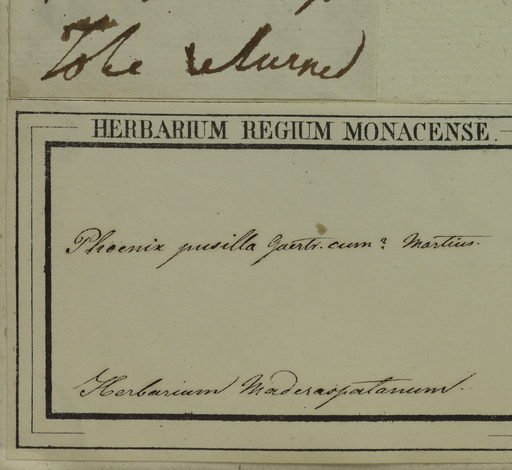 To be returned
HERBARIUM REGIUM MONACENSE.
Phoenix pusilla Gaertr. cum? Martius.
Herbarium Maderaspatanum.